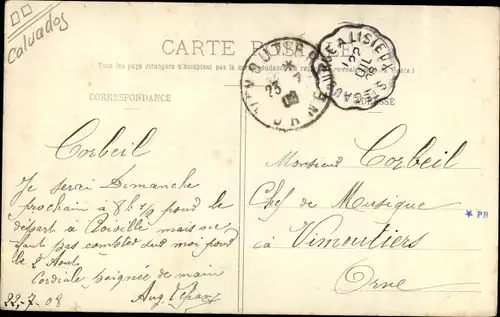 Calvados
CARTE POSTALE
Tous les pays étrangers n'acceptent pas la correspondance au
CORRESPONDANCE
ADRESSE
VIMOUTIERS
23
ORNE
A LISIEUX
22
08
Corbeil
Je serai Dimanche
prochain à 8h 1/2 pour le
départ à mais ne
faut pas compter sur moi pour
le 2 Aout.
Cordiale poignée de main
Aug.
22-7-08
Monsieur Corbeil
Chef de Musique
à Vimoutiers
Orne
* PR